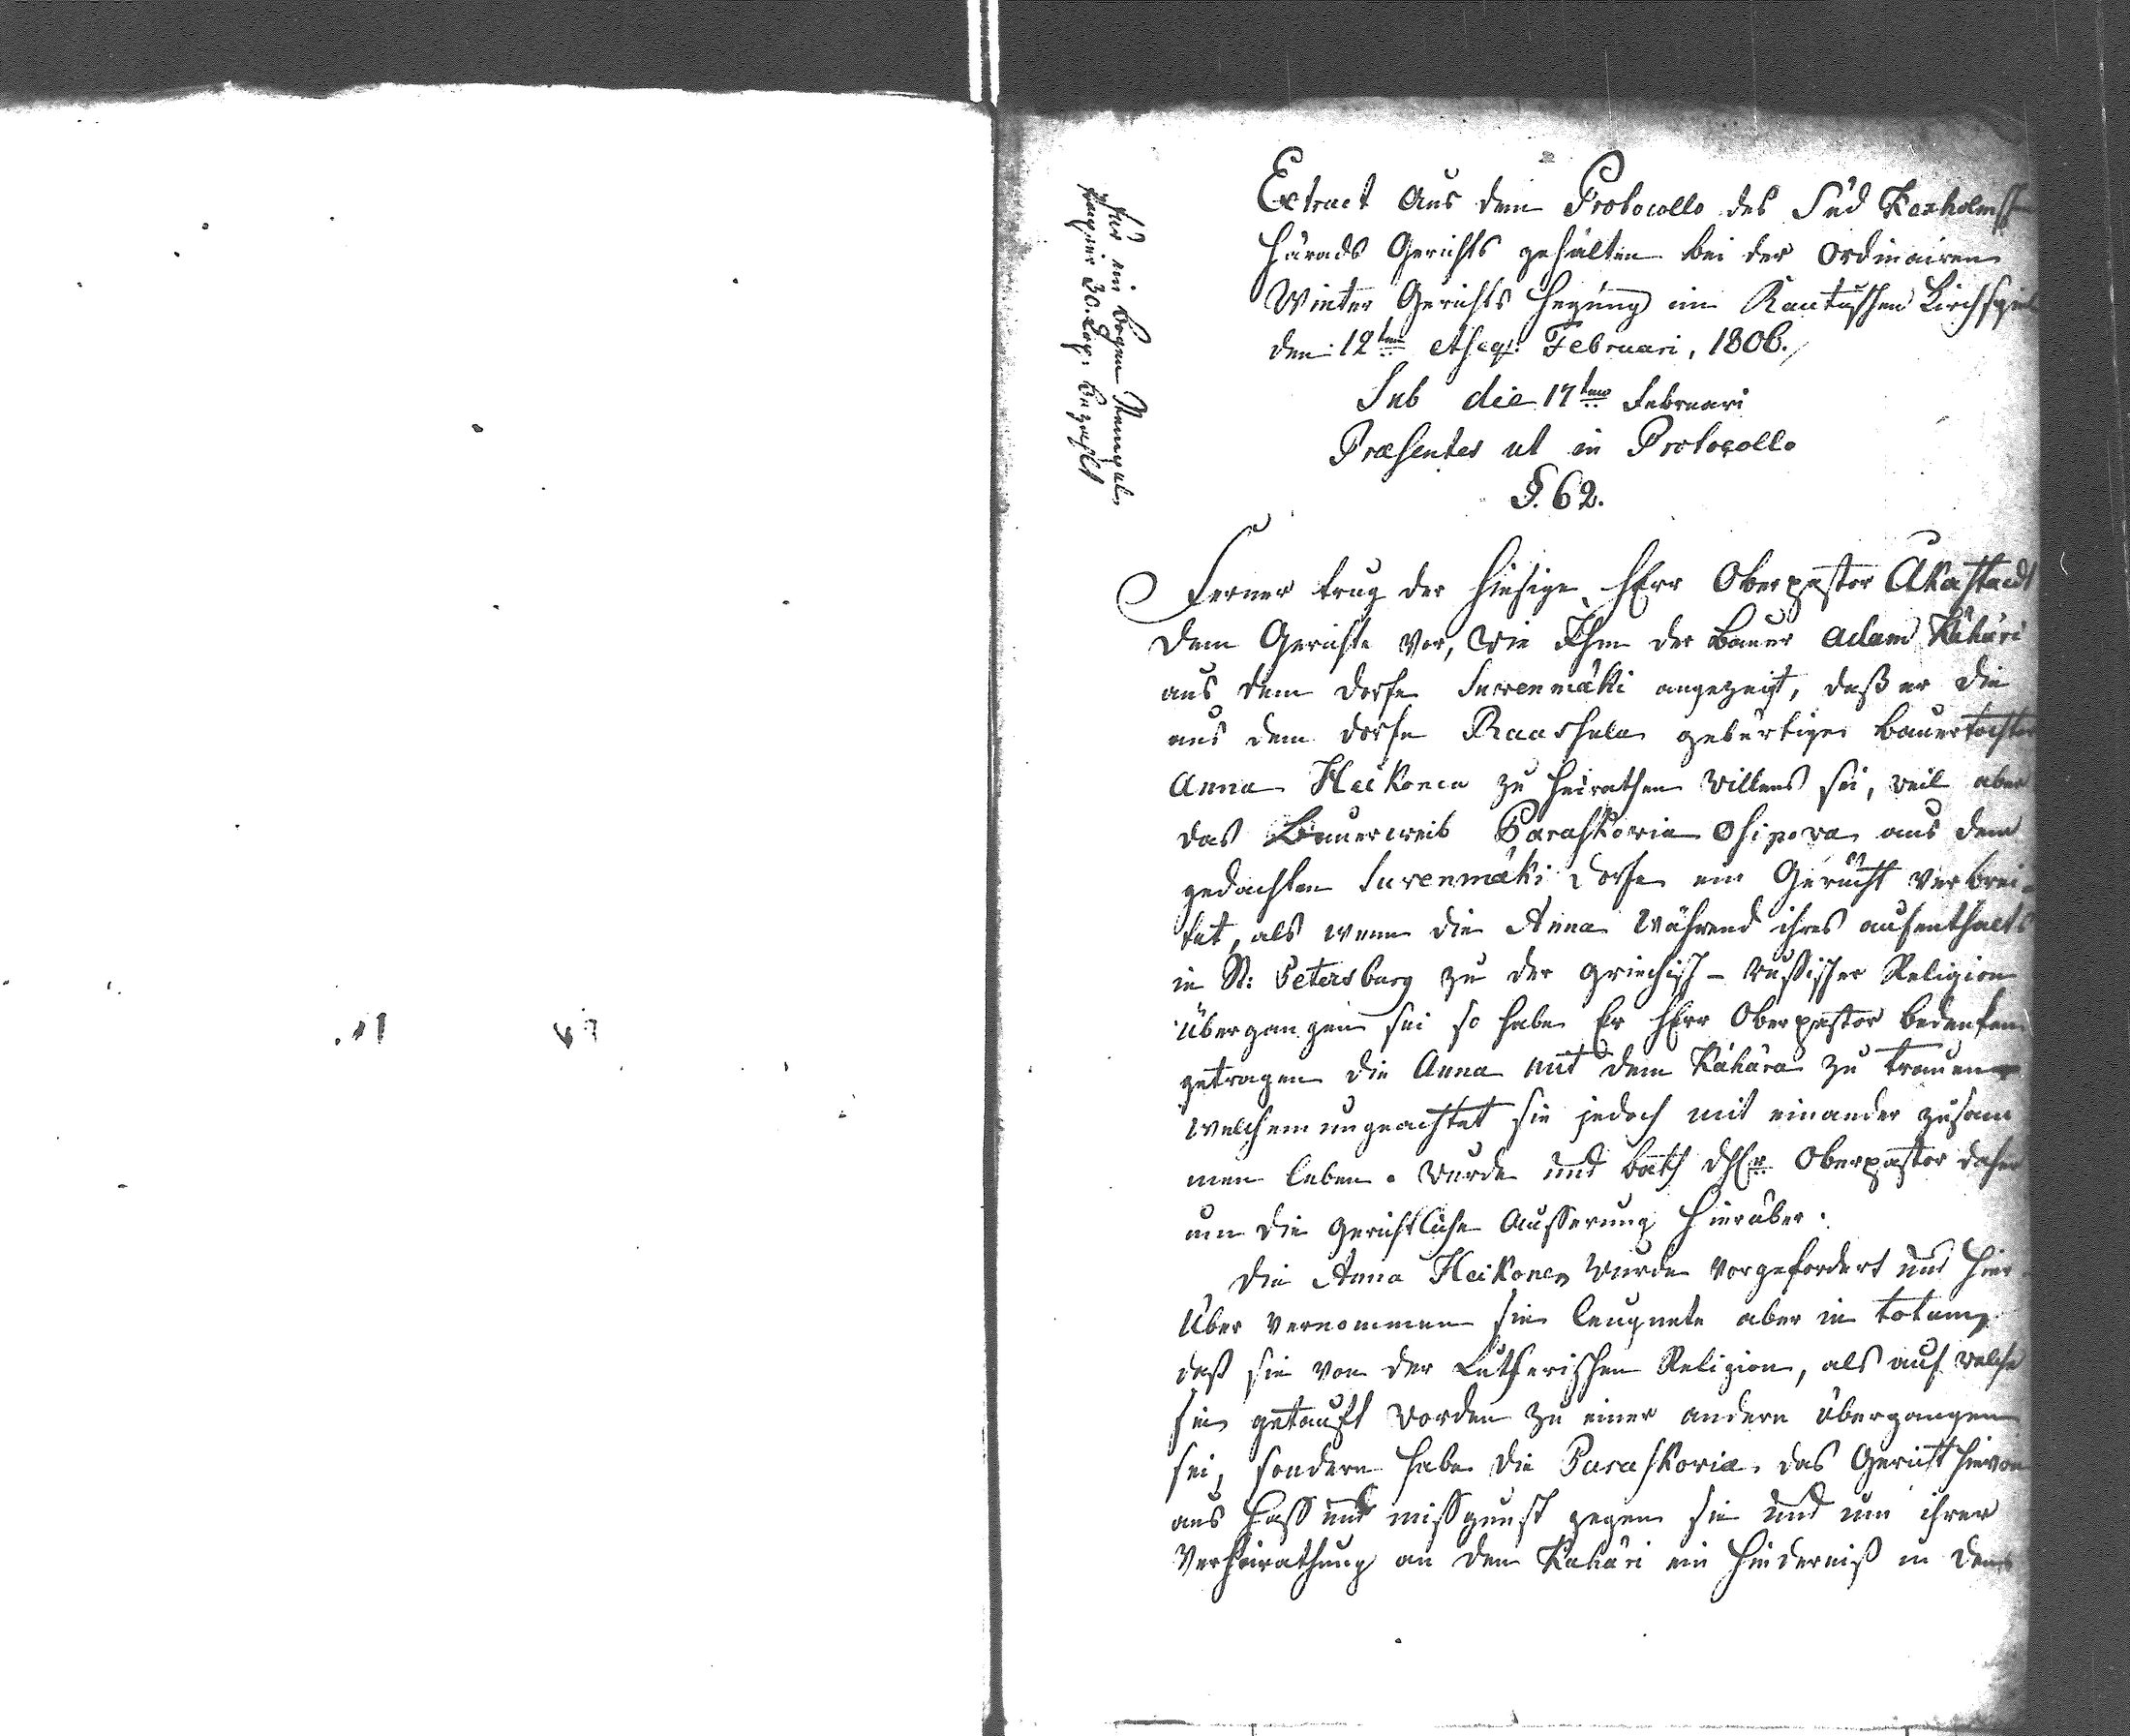 Für ein Bogen Stempel
papier 30. Cop: bezahlt
Extract aus dem Protocollo des Süd Kexholmschen
Härads Gerichts gehalten bei der ordinairen
Winter Gerichts Hegung im Rautuschen Kirchspiel
den 12ten et seq: Februari, 1806.
Sub die 17ten Februari
Præsentes ut in Protocollo
§. 62.
Ferner trug der hiesige HErr Oberpastor Akastaedt
dem Gerichte vor, wie Ihm der Bauer Adam Kähäri
aus dem Dorfe Suvenmäki angezeigt, daß er die
aus dem Dorfe Raashula gebürtige Bauertochter
Anna Heikonen zu heirathen willens sei, weil aber
das Bauerweib Paraskowia Osipova aus dem
gedachten Suvenmäki Dorfe ein Gerücht verbrei-
tet, als wenn die Anna während ihres aufenthalts
in St: Petersburg zu der griechisch-russischer Religion
übergangen sei so habe Er HErr Oberpastor bedenken
getragen die Anna mit dem Kähära zu trauen
welchem ungeachtet sie jedoch mit einander zusam
men leben. Wurde und bath dHEr Oberpastor daher
um die gerichtliche Ausserung hierüber.
Die Anna Heikonen wurde vorgefordert und hier
über vernommen sie leugnete aber in totum,
daß sie von der Lutherischen Religion, als auf welche
sie getauft worden zu einer andern übergangen
sei, sondern habe die Paraskovia das Gerücht hievon
aus Hass und missgunst gegen sie und um ihrer
Verheirathung an den Kahäri ein Hinderniß in den